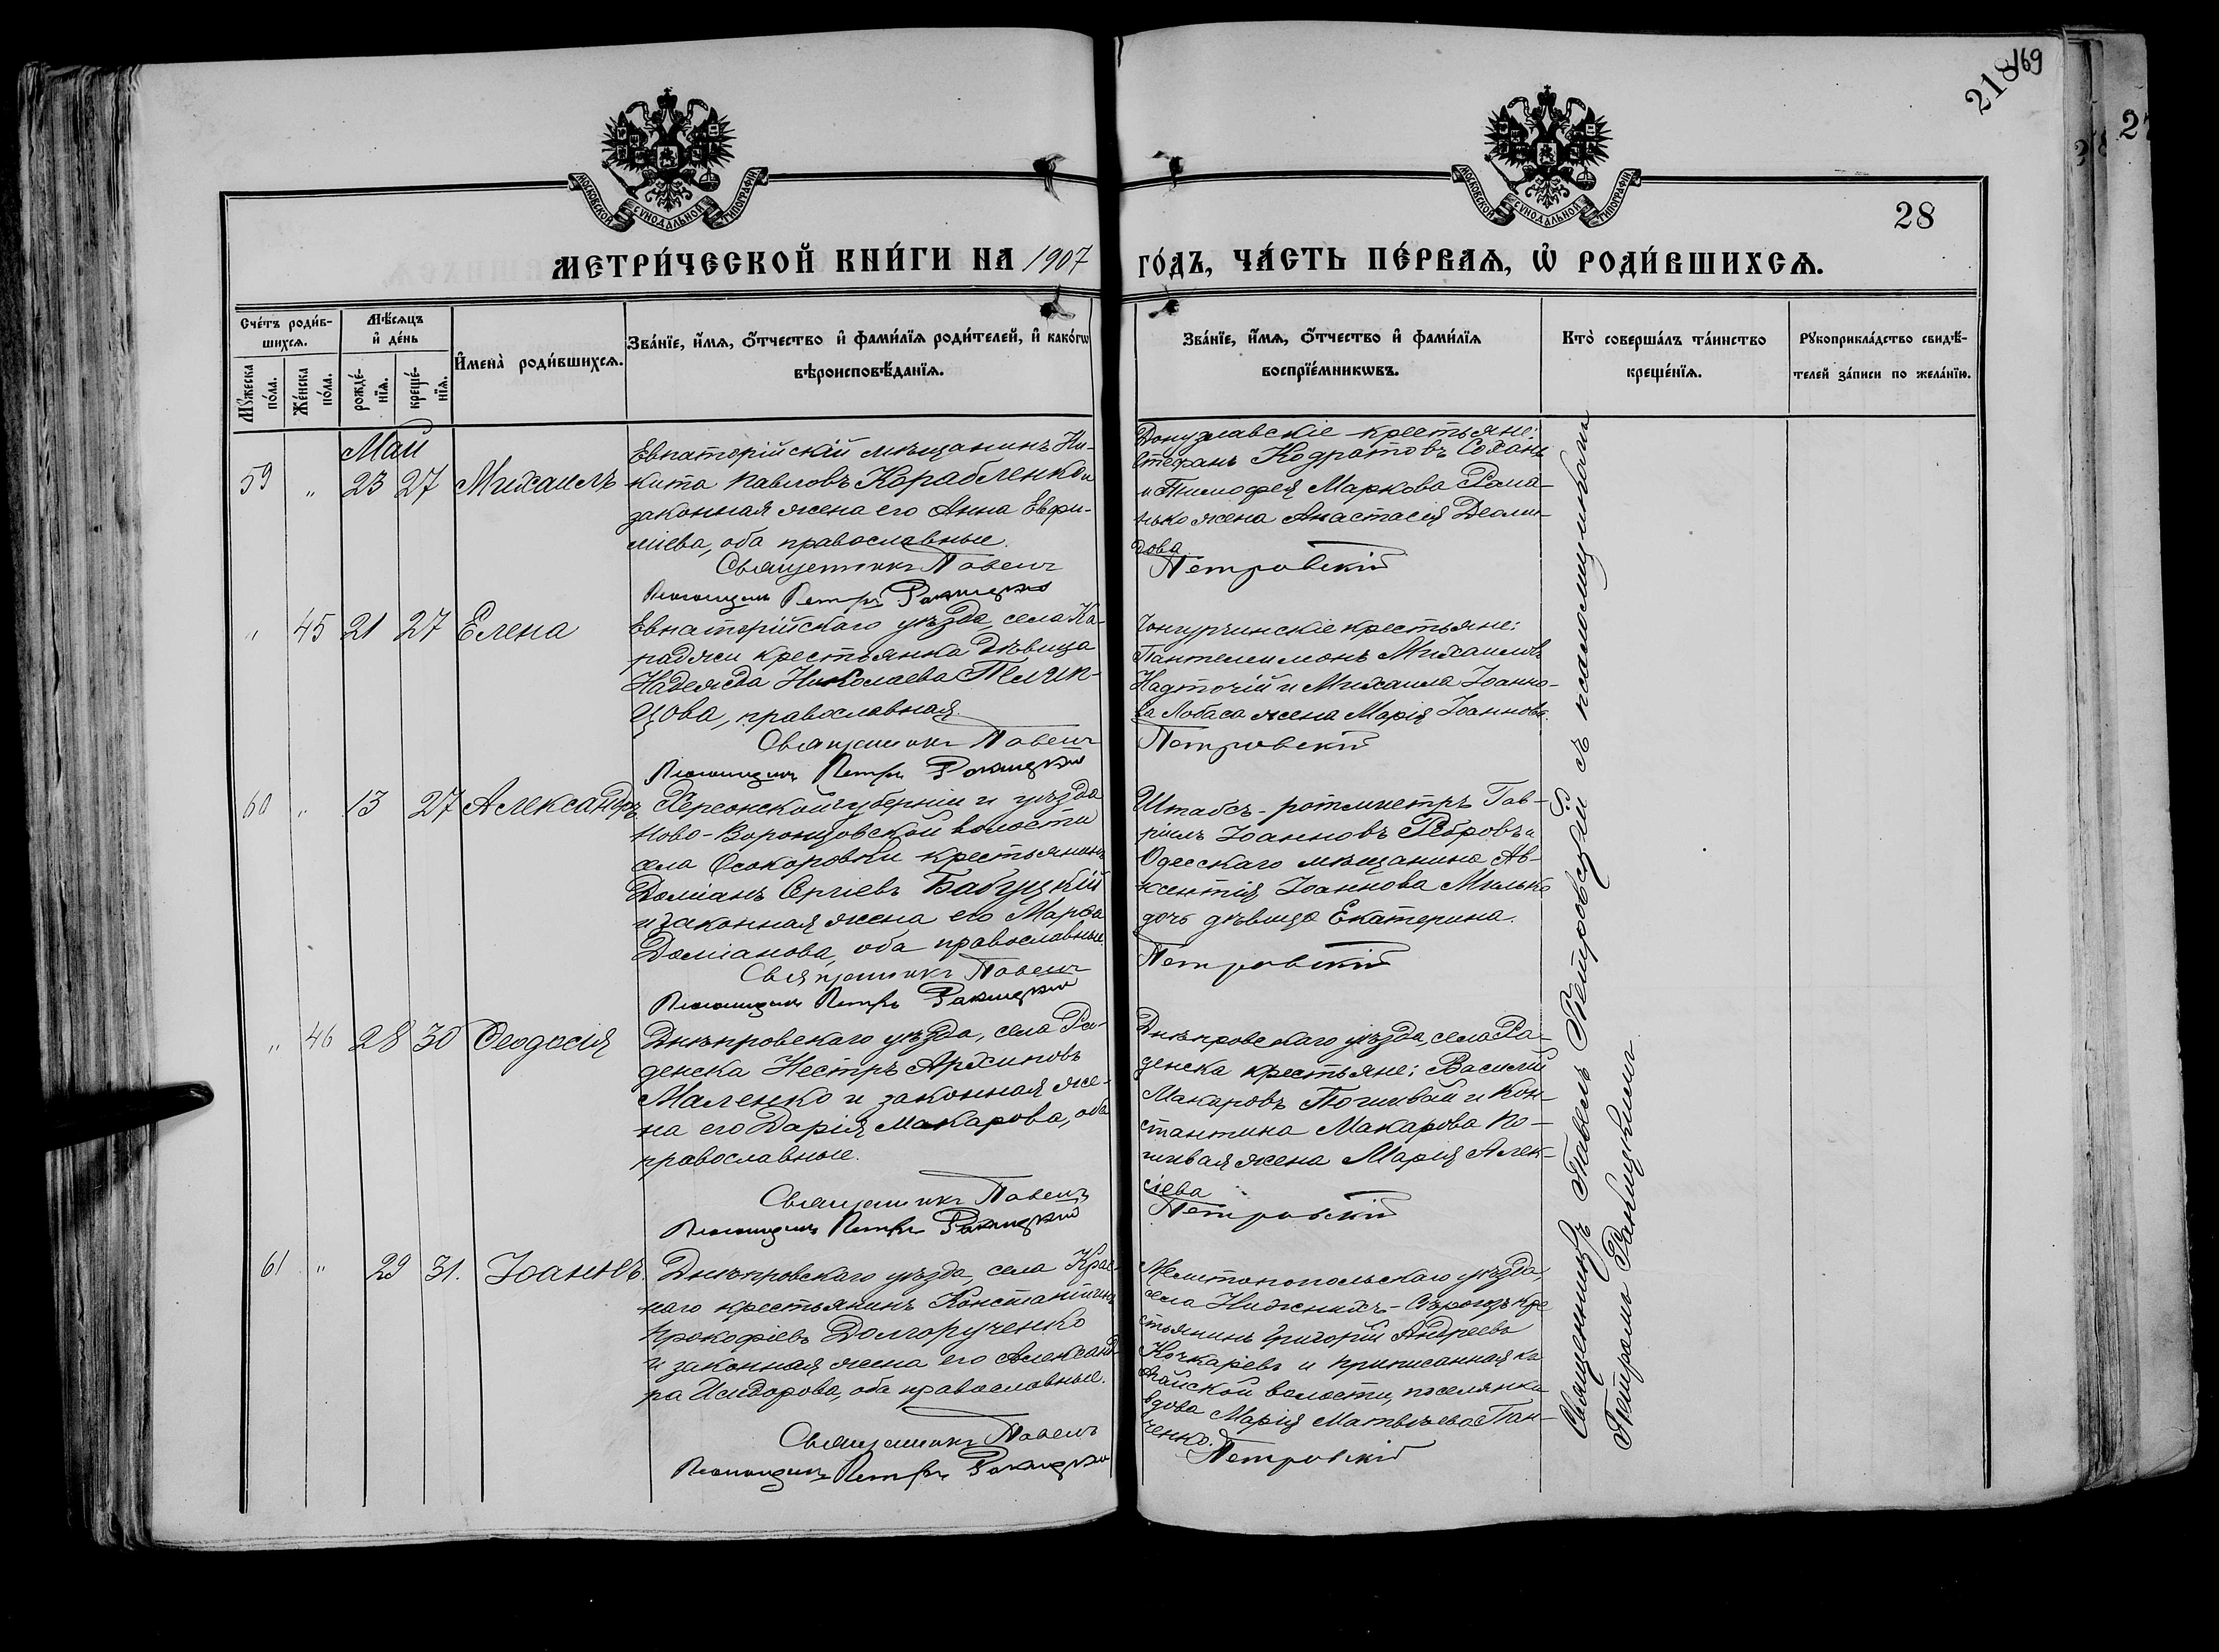 218 169
МОСКОВСКОЙ СѴНОДАЛЬНОЙ ТИПОГРАФІИ
МОСКОВСКОЙ СѴНОДАЛЬНОЙ ТИПОГРАФІИ
28
МЕТРИ́ЧЕСКОЙ КНИ́ГИ НА 1907 ГО́ДЪ, ЧА́СТЬ ПЕ́РВАѦ, Ѡ РОДИ́ВШИХСѦ.
Сче́тъ роди́в-
шихсѧ.
Мꙋ́жеска по́ла.
Же́нска по́ла.
Мѣ́сѧцъ
и҆ де́нь
рожде́-
нїѧ.
креще́-
нїѧ.
И҆мена̀ роди́вшихсѧ.
Зва́нїе, и҆́мѧ, ѻ҆́тчество и҆ фами́лїѧ роди́телей, и҆ како́гѡ
вѣроисповѣ́данїѧ.
Зва́нїе, и҆́мѧ, ѻ҆́тчество и҆ фами́лїѧ
воспрїе́мникѡвъ.
Кто̀ соверша́лъ та́инство
креще́нїѧ.
Рꙋкоприкла́дство свидѣ́-
телей за́писи по жела́нїю.
Май
59 " 23 27 Михаилъ
Евпаторійскій мѣщанинъ Ни-
кита Павловъ Корабленко и
законная жена его Анна Евфи-
міева, оба православные.
Священникъ Павелъ
Псаломщикъ Петръ Ракицкій
Донузлавскіе крестьяне:
Стефанъ Кодратовъ Сохань
и Тимофея Маркова Рома-
нько жена Анастасія Деоми-
дова
Петровскій
" 45 21 27 Елена
Евпаторійскаго уѣзда, села Ка-
раджи крестьянка дѣвица
Надежда Николаева
православная.
Священникъ Павелъ
Псаломщикъ Петръ Ракицкій
крестьяне:
Пантелеимонъ Михаиловъ
Надточій и Михаила Іоанно-
ва Лобаса жена Марія Іоаннова.
Петровскій
60 " 13 27 Александръ
Херсонской губерніи и уѣзда
Ново-Воронцовской волости
села Осокоровки крестьянинъ
Доміанъ Сергіевъ Бабуцкій
и законная жена его Марѳа
Доміанова, оба православные
Священникъ Павелъ
Псаломщикъ Петръ Ракицкій
Штабсъ-ротмистръ Гав-
ріилъ Іоанновъ Ребровъ и
Одесскаго мѣщанина Ав-
ксентія Іоаннова Милько
дочь дѣвица Екатерина.
Петровскій
" 46 28 30 Ѳеодосія
Днѣпровскаго уѣзда, села Ра-
денска Нестръ Архиповъ
Маленко и законная же-
на его Дарія Макарова, оба
православные.
Священникъ Павелъ
Псаломщикъ Петръ Ракицкій
Днѣпровскаго уѣзда, села Ра-
денска крестьяне: Василій
Макаровъ Погивай и Кон-
стантина Макарова По-
гивая жена Марія Алек-
сіева
Петровскій
61 " 29 31. Іоаннъ.
Днѣпровскаго уѣзда, села Крас-
наго крестьянинъ Константинъ
Прокофіевъ Долгорученко
и законная жена его Александ-
ра Исидорова, оба православные.
Священникъ Павелъ
Псаломщикъ Петръ Ракицкій
Мелитопольскаго уѣзда,
села Нижнихъ-Сѣрогозъ кре
стьянинъ Григорій Андреевъ
Кочкаріевъ и приписанная къ
волости, поселянка
вдова Марія Матвѣева Пан-
ченко.
Петровскій
Священникъ Павелъ Петровскій съ псаломщикомъ
Петромъ Ракицкимъ